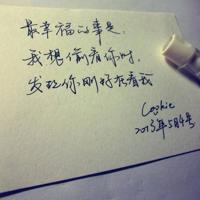 最幸福的事是
我想偷看你时，
发现你刚好在看我
Cookie
2013年5月4号